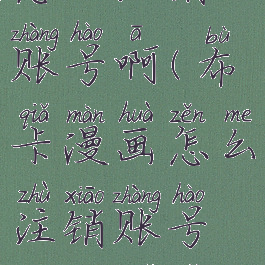 zhàng hào ā bù
账号啊(布
qiǎ màn huà zěn me
卡漫画怎么
zhù xiāo zhàng hào
注销账号